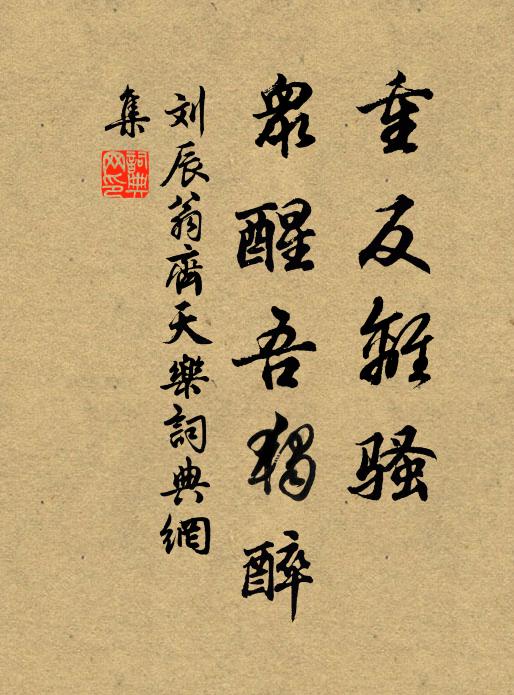 重反離騷
衆醒吾獨醉
刘辰翁齊天樂詞典網
集
詞典
网印